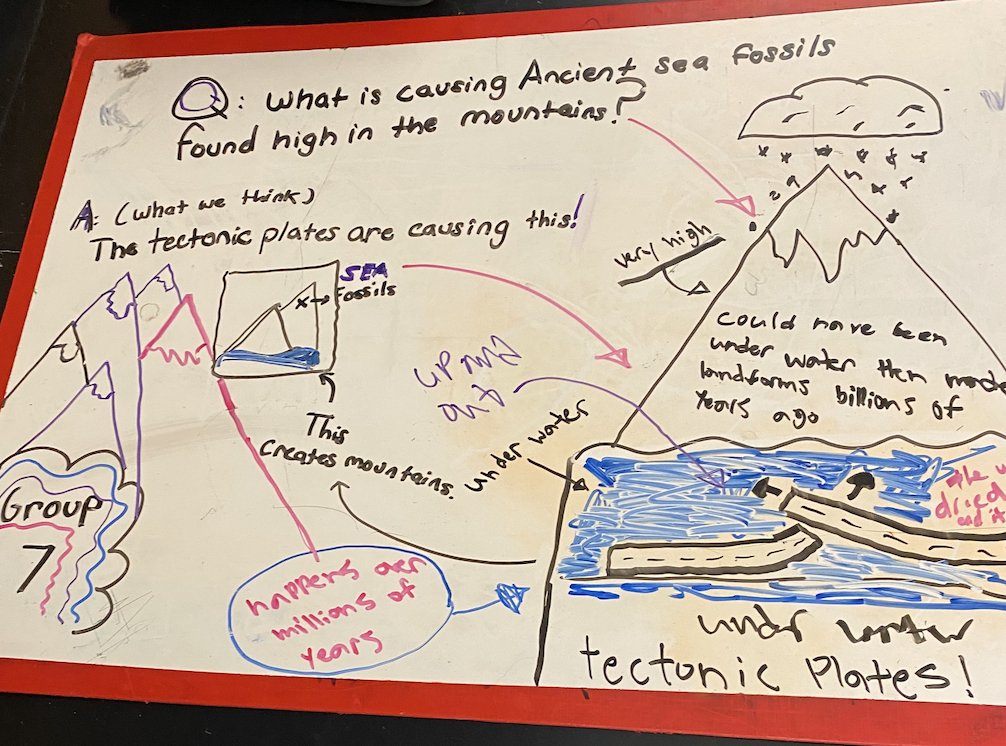 Q: What is causing Ancient sea Fossils
found high in the mountains?
A: (What we think)
The tectonic plates are causing this!
SEA
Fossils
X→
This
creates mountains.
Group
7
happens over
millions of
years
very high
could have been
under water then made
landforms billions of
years ago
up and
out
under water
dried
and it
under water
tectonic Plates!